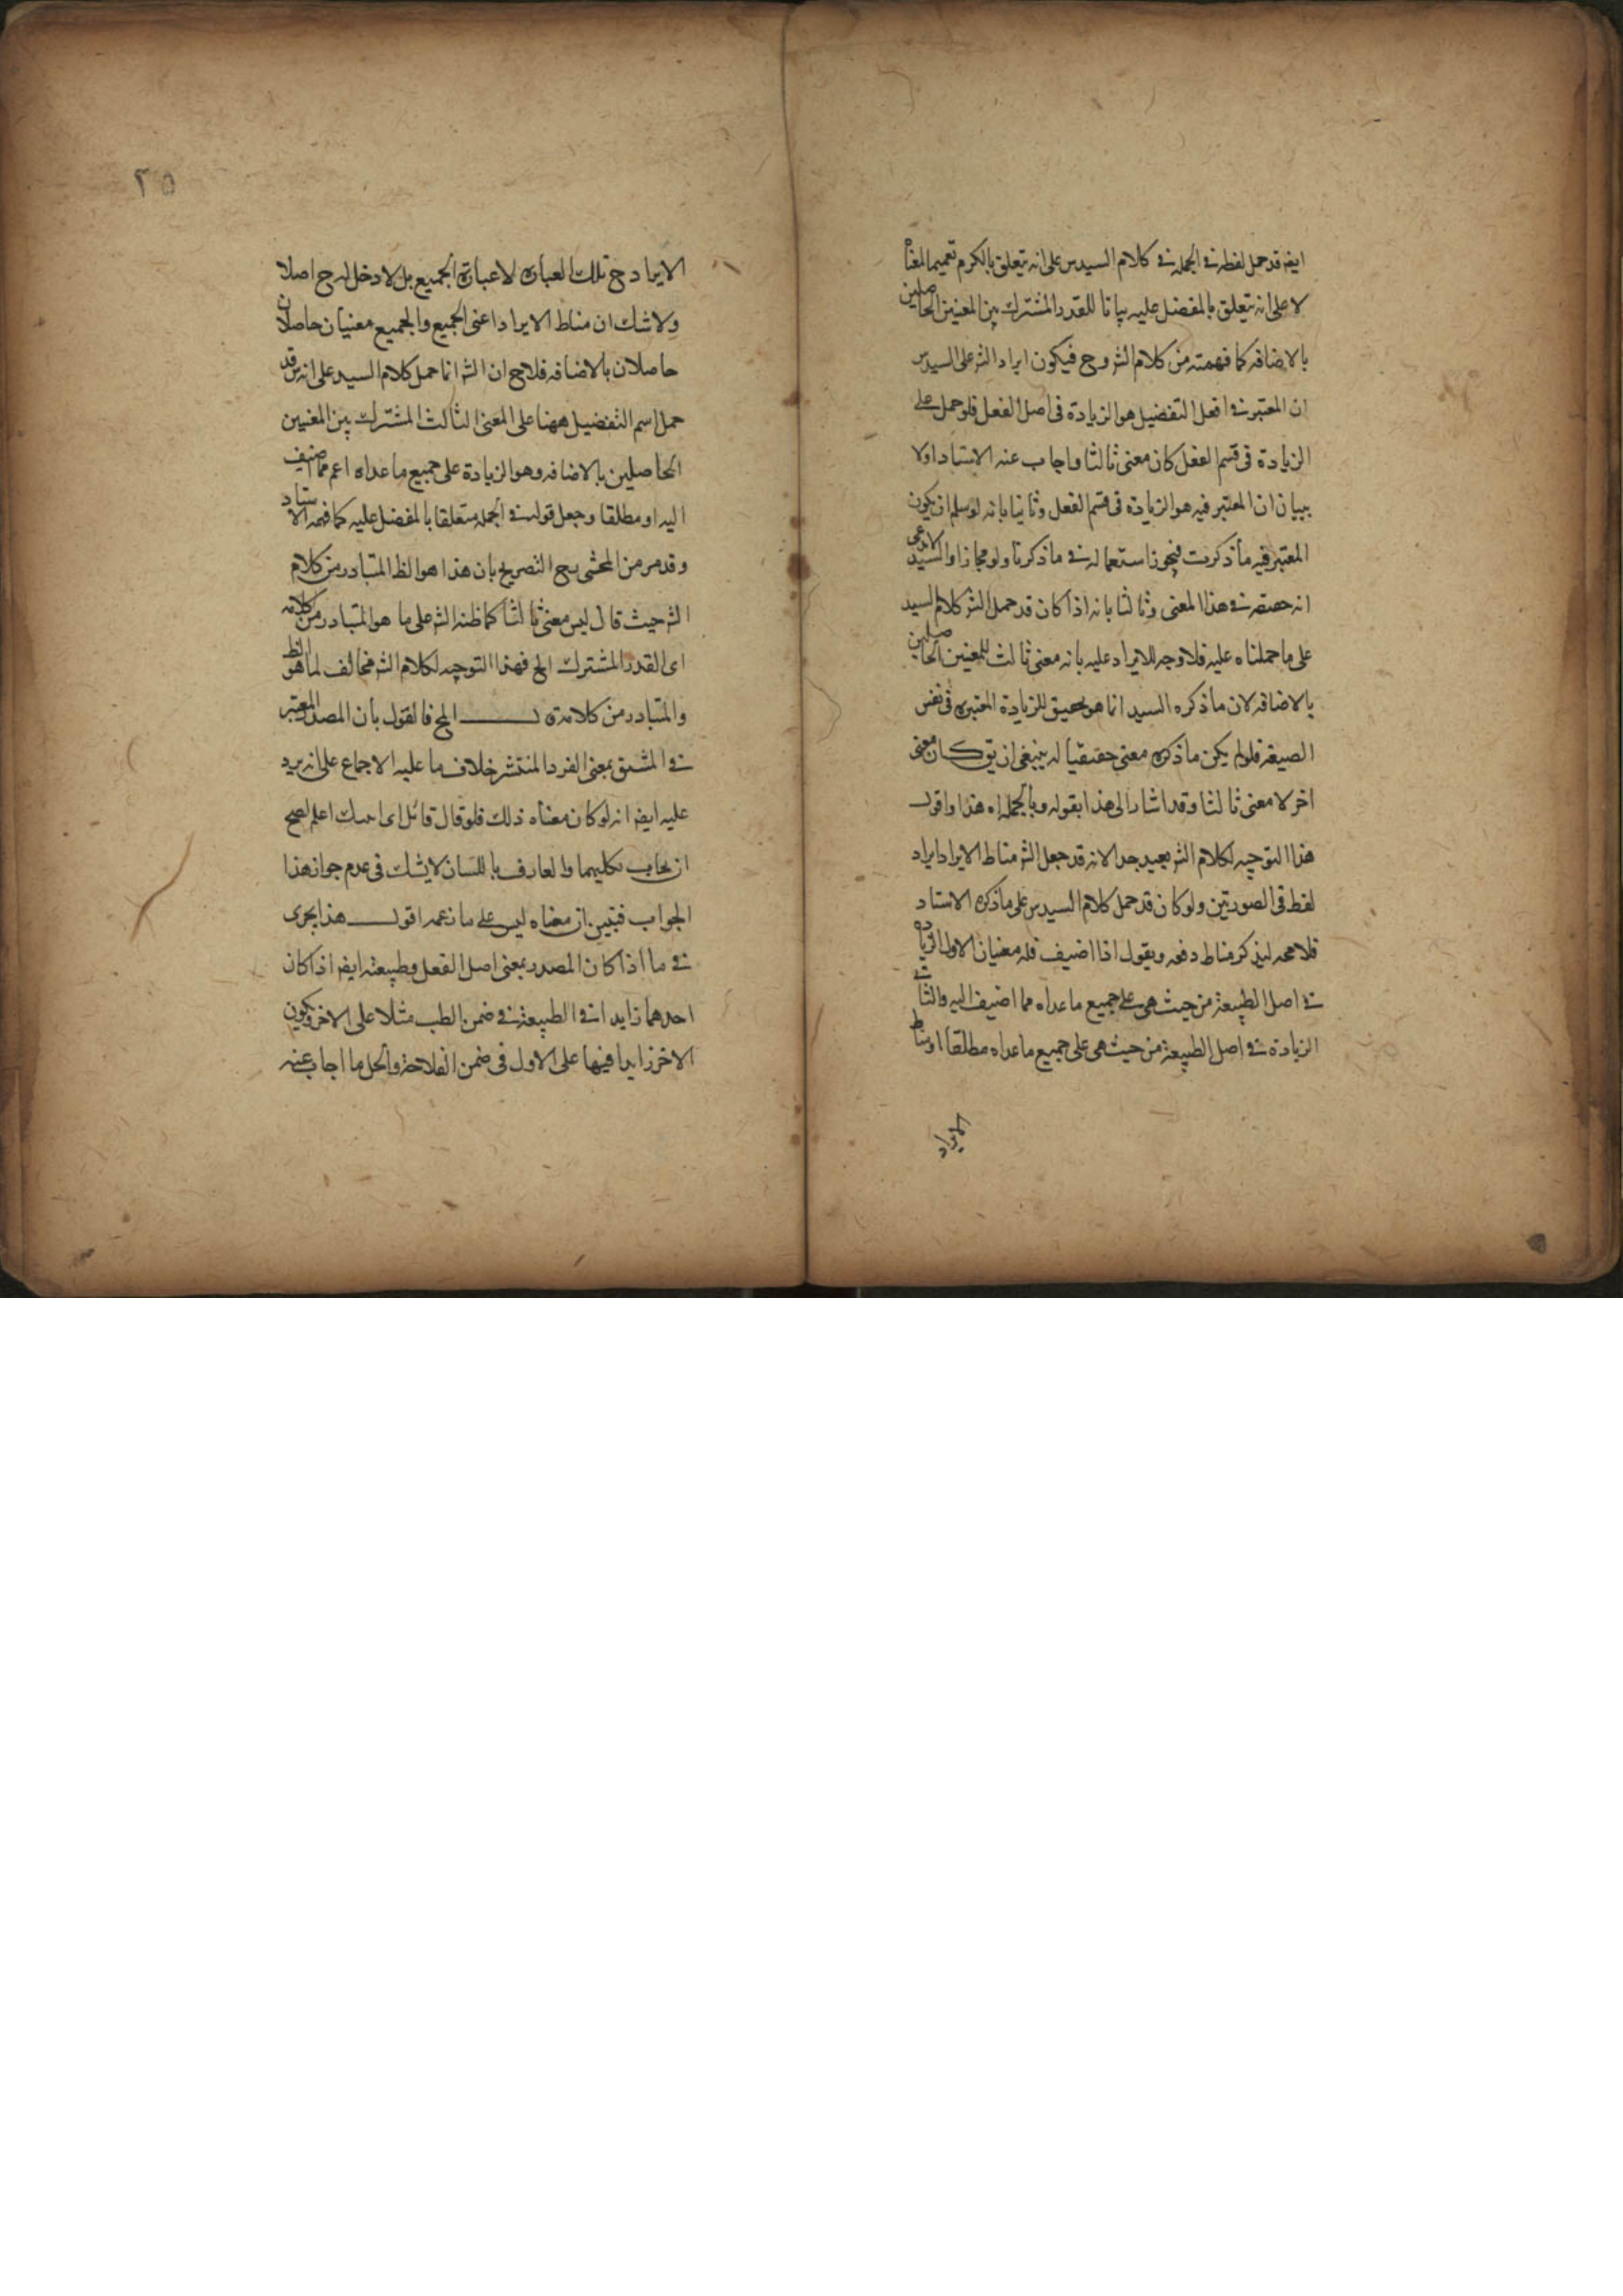 ايضه قد حمل لفظه في الجمله في كلام السيد س على انه يتعلق بالكرم تعميما لمعناه
لا على انه يتعلق بالمفضل عليه بيانا للقدر المشترك بين المعنيين الحاصلين
بالاضافه كما فهمته من كلام الشر وح فيكون ايراد الشر على السيد س
ان المعتبر في افعل التفضيل هو الزيادة فى اصل الفعل فلو حمل على
الزيادة فى قسم الفعل كان معنى ثالثا واجاب عنه الاستاد اولا
ببيان ان المعتبر فيه هو الزيادة فى قسم الفعل وثانيا بانه لو سلم ان يكون
المعتبر فيه ما ذكرت فيجوز استعماله في ما ذكرنا ولو مجازا والسيد لا يدعى
انه حقيقه في هذا المعنى وثالثا بانه اذا كان قد حمل الشر كلام السيد
على ما حملناه عليه فلا وجه للايراد عليه بانه معنى ثالث للمعنيين الحاصلين
بالاضافه لان ما ذكره السيد انما هو تعيين للزيادة المعتبره فى نفس
الصيغه فلو لم يكن ما ذكره معنى حقيقيا له ينبغى ان يق كان معنى
اخر لا معنى ثالثا وقد اشار الى هذا بقوله وبالجمله اه هذا واقول
هذا التوجيه لكلام الشر بعيد جدا لانه قد جعل الشر مناط الايراد ايراد
لفظ فى الصورتين ولو كان قد حمل كلام السيد س على ما ذكره الاستاد
فلا لذكر مناط دفعه ويقول اذا اضيف فله معنيان الاول الزيادة
في اصل الطبيعة من حيث هى على جميع ما عداه مما اضيف اليه والثانى
الزيادة في اصل الطبيعة من حيث هى على جميع ما عداه مطلقا او مناط
الايراد
٢٥
الايراد ح تلك العبارة لا عبارة الجميع بل لا دخل له ح اصلا
ولا شك ان مناط الايراد اعنى الجميع والجميع معنيان حاصلان
حاصلان بالاضافه فلاح ان الشر انما حمل كلام السيد على انه س قد
حمل اسم التفضيل ههنا على المعنى الثالث المشترك بين المعنيين
الحاصلين بالاضافه وهو الزيادة على جميع ما عداه اعم مما اضيف
اليه او مطلقا وجعل قوله في الجمله متعلقا بالمفضل عليه كما فهمه الاستاد
وقد مر من المحشى التصريح بان هذا هو الظ المتبادر من كلام
الشر حيث قال ليس معنى ثالثا كما ظنه الشر على ما هو المتبادر من كلامه
اى القدر المشترك الخ فهذا التوجيه لكلام الشر مخالف لما هو الظ
والمتبادر من كلامه قـــول الخ فالقول بان المصدر المعتبر
في المشتق بمعنى الفرد المنتشر خلاف ما عليه الاجماع على انه يرد
عليه ايضه انه لو كان معناه ذلك فلو قال قائل اى اعلم لصح
ان يجاب بكليهما والعارف باللسان لا يشك فى عدم جواز هذا
الجواب فتبين ان معناه ليس على ما زعمه اقول هذا يجرى
في ما اذا كان المصدر بمعنى اصل الفعل وطبيعته ايضه اذا كان
احدهما زايدا في الطبيعة في ضمن الطب مثلا على الاخر ويكون
الاخر زايدا فيها على الاول فى ضمن الفلاحة والحل ما اجاب عنه